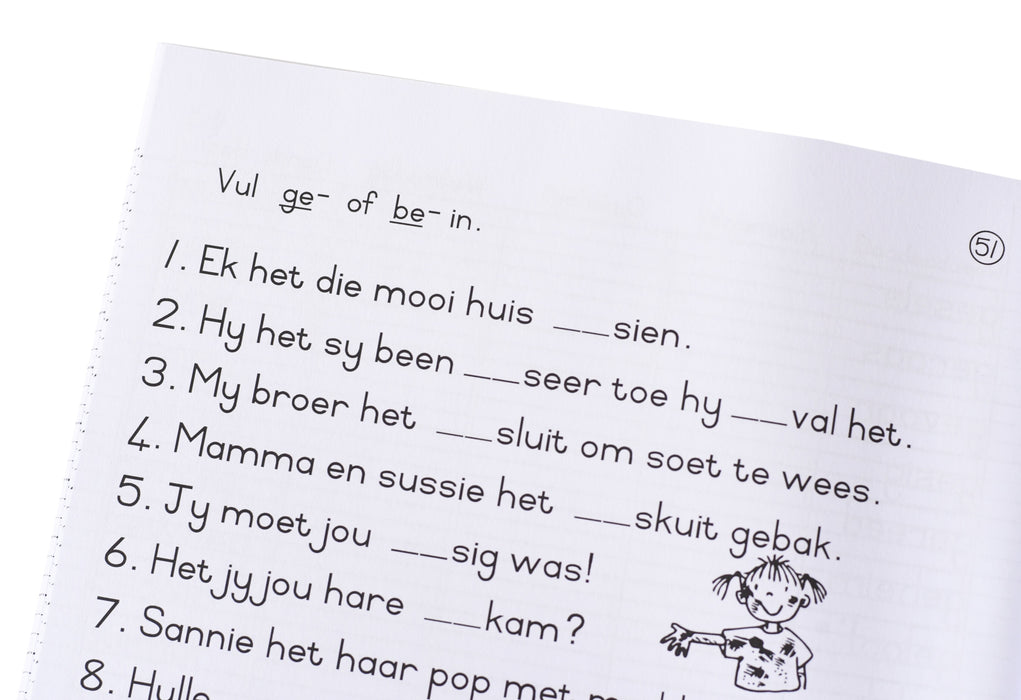 Vul ge- of be- in.
51
1. Ek het die mooi huis __sien.
2. Hy het sy been __seer toe hy __val het.
3. My broer het __sluit om soet te wees.
4. Mamma en sussie het __skuit gebak.
5. Jy moet jou __sig was!
6. Het jy jou hare __kam?
7. Sannie het haar pop met
8. Hulle